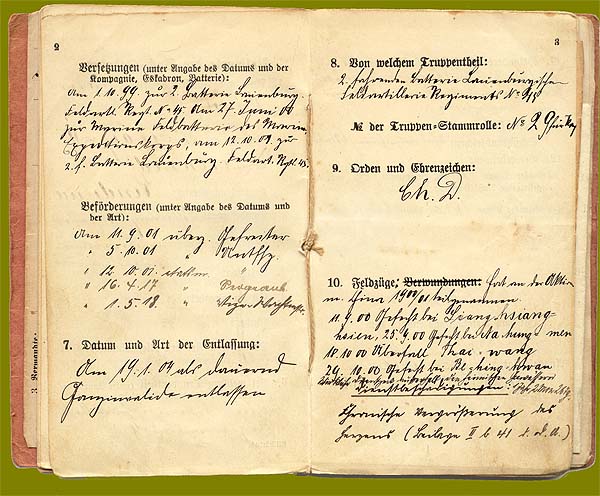 2
Versetzungen (unter Angabe des Datums und der
Kompagnie, Eskadron, Batterie):
Am 1.10.99 zur 2. Batterie Lauenburg.
Feldart. Regt. No 45 Am 27. Juni 00
zur Marine Feldbatterie des Marine
Expeditionskorps, am 12.10.01 zur
2. f. Batterie Lauenburg. Feldart. Rgt. 45.
Beförderungen (unter Angabe des Datums und
der Art):
Am 11.9.01 überz. Gefreiter
" 5.10.01 "
" 12.10.01 "
" 16.4.17 "
" 1.5.18. "
7. Datum und Art der Entlassung:
Am 19.1.04 als dauernd
Ganzinvalide entlassen
3. Normandie.
3
8. Von welchem Truppentheil:
2. fahrenden Batterie Lauenburgischen
Feldartillerie Regiments No 45
№ der Truppen-Stammrolle: No 2
9. Orden und Ehrenzeichen:
Ch. D.
10. Feldzüge, Verwundungen: Hat an der Aktion
in China 1900/01 teilgenommen.
11.9.00 Gefecht bei Liang-hsiang-
hsien, 25.9.00 Gefecht bei Na hung-men
18.10.00 Überfall Thai-wang
29.10.00 Gefecht bei
Dienstbeschädigungen:
Chronische Vergrößerung des
Herzens (Beilage II b 41 d. D. A.)